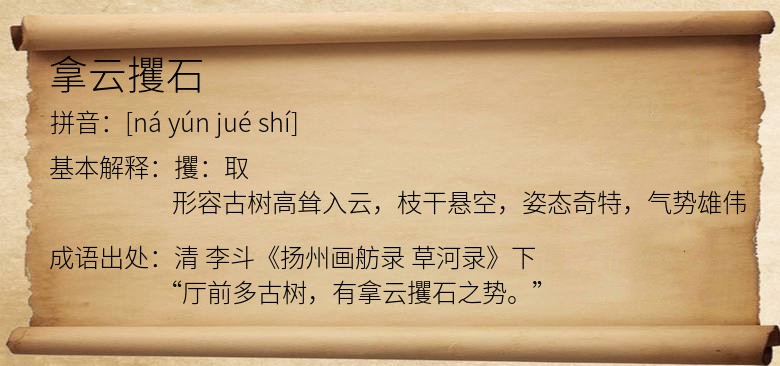 拿云攫石
拼音：[ná yún jué shí]
基本解释：攫：取
形容古树高耸入云，枝干悬空，姿态奇特，气势雄伟
成语出处：清 李斗《扬州画舫录 草河录》下
“厅前多古树，有拿云攫石之势。”